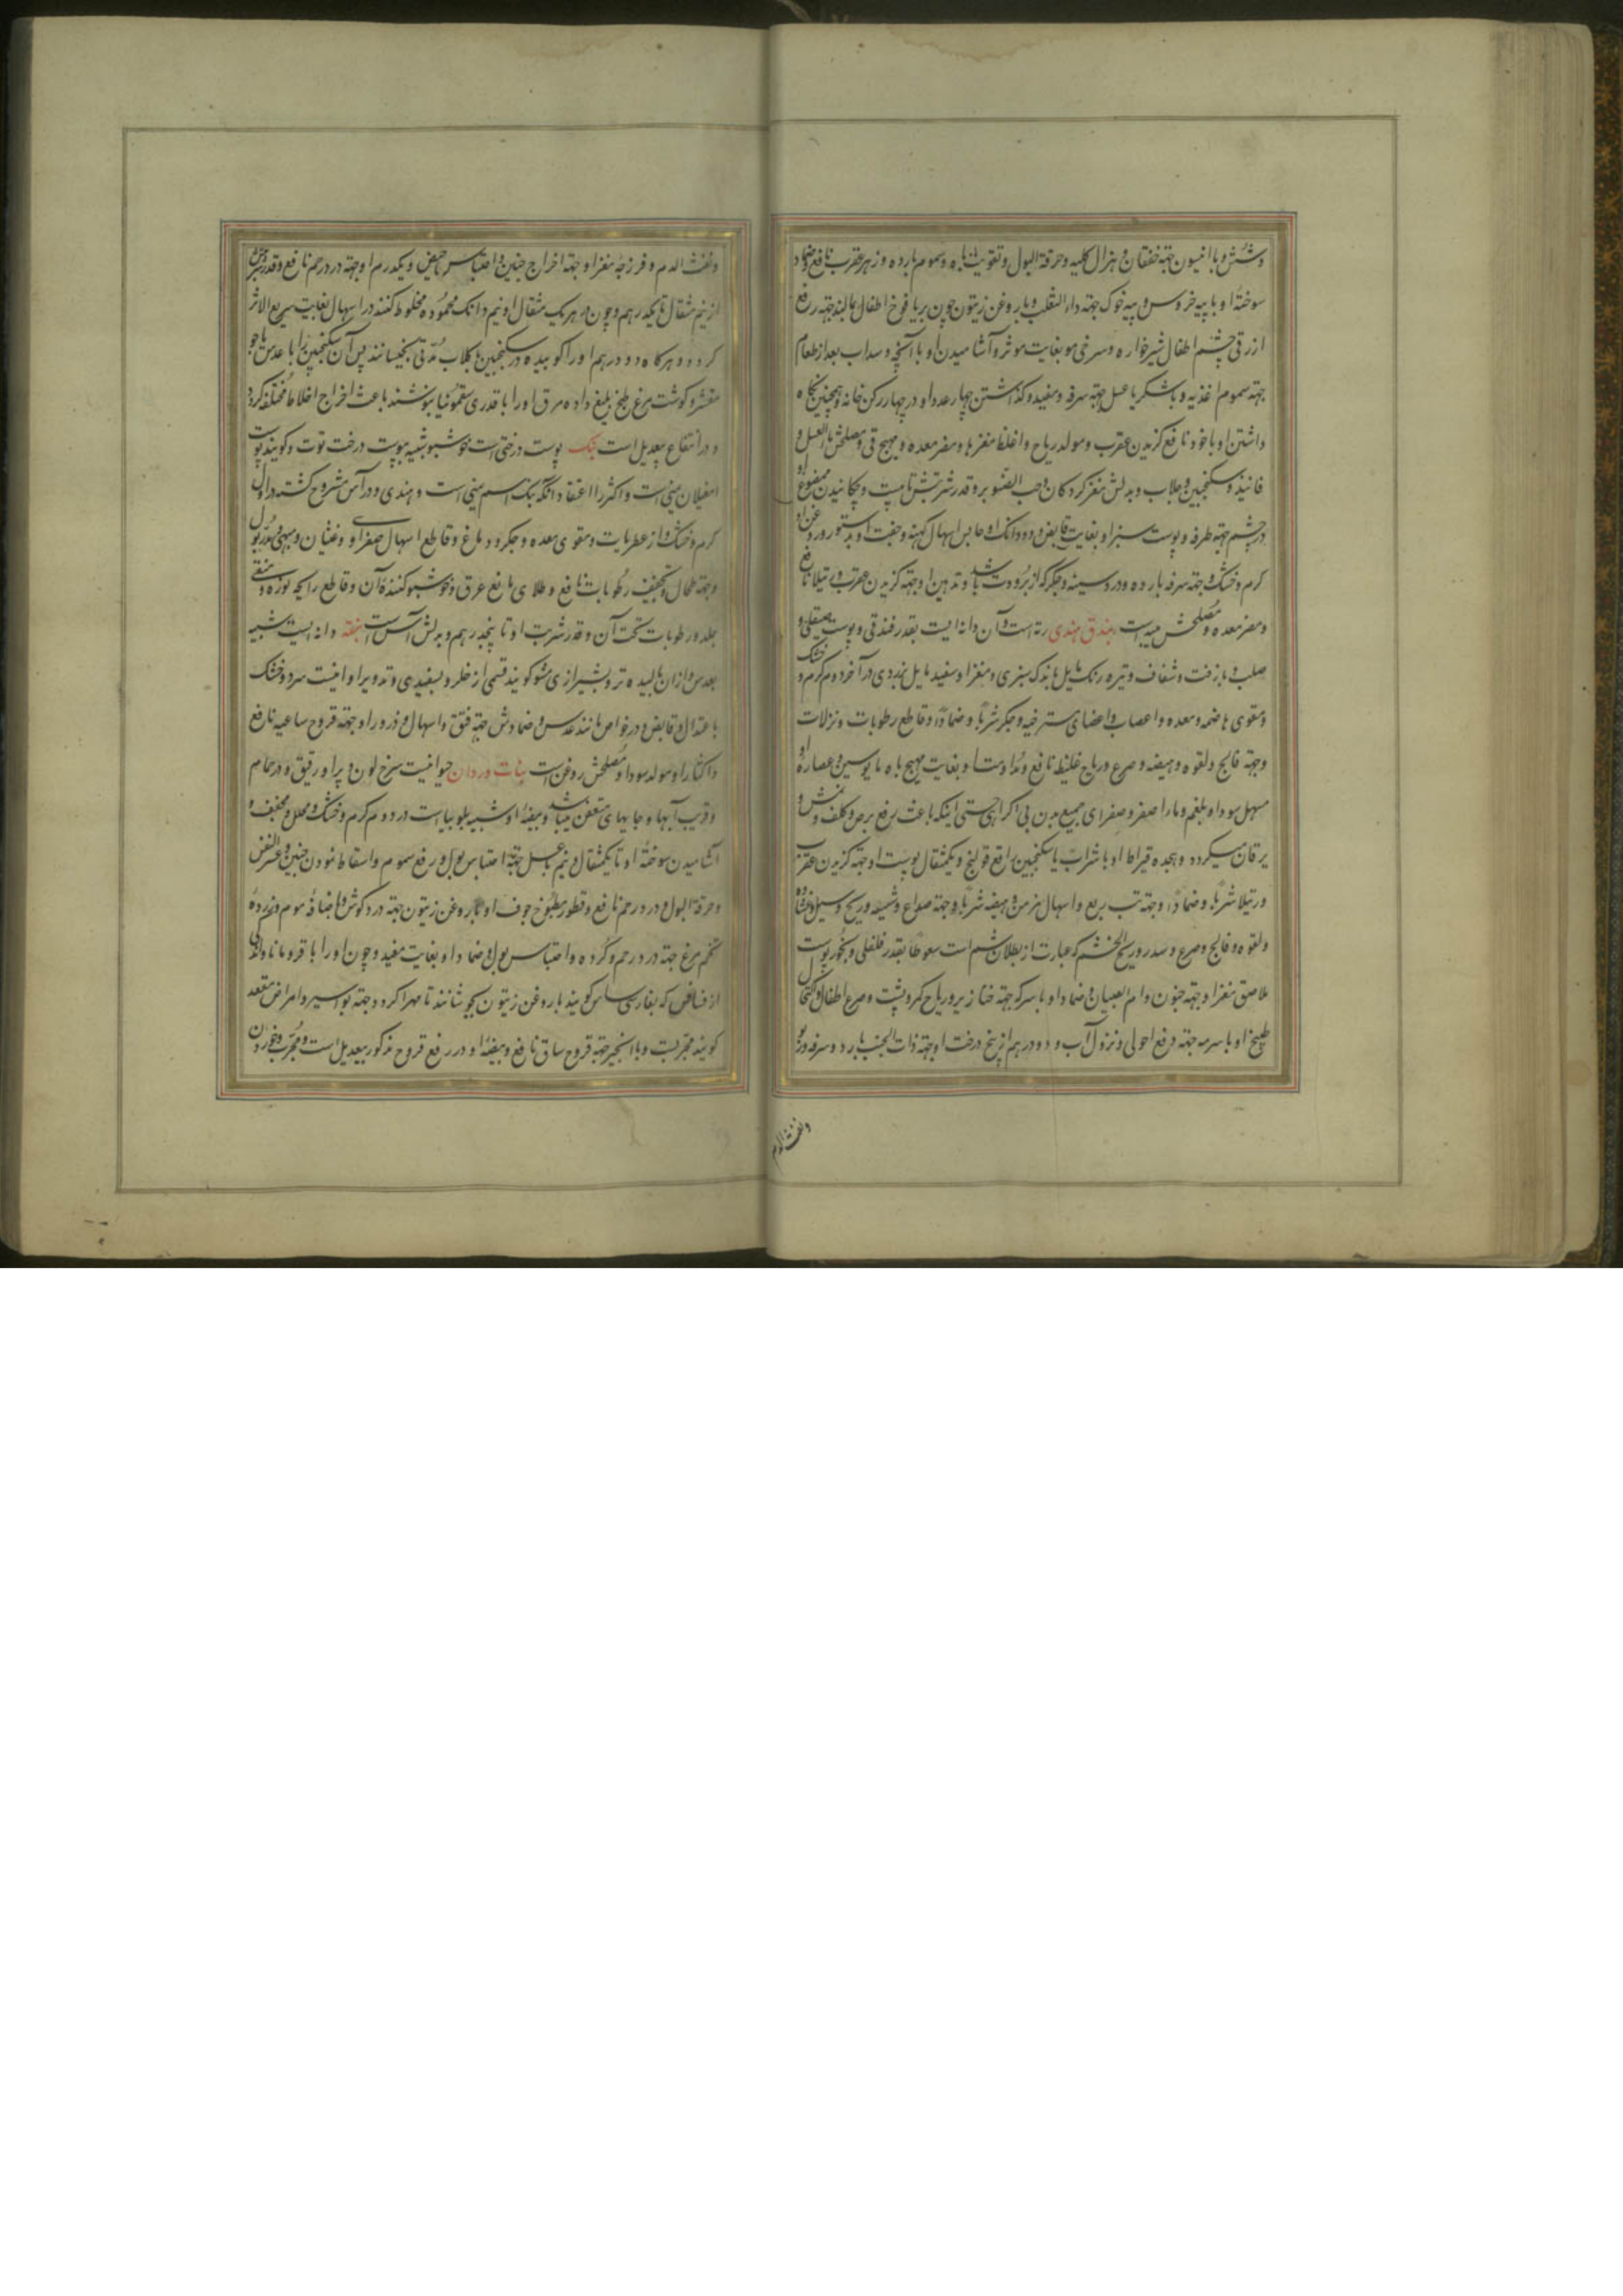 وشش و با انیسون جهة خفقان و هزال کلیه و حرقة البول و تقویت باه و سموم بارده و زهر عقرب نافع و ضماد
سوختهٔ او با پیه خروس و پیه خوک جهة داء الثعلب و با روغن زیتون چون بر یافوخ اطفال بمالند جهة رفع
ازرقی چشم اطفال شیرخواره و سرخی مو بغایت موثر و آشامیدن او با انجیر و سداب بعد از طعام
جهة سموم اغذیه و با شکر یا عسل جهة سرفه و مفید و گذاشتن چهار عدد او در چهار رکن خانه و همچنین نگاه
داشتن او با خود نافع گزیدن عقرب و مولد ریاح و اغلظ مغزها و مضر معده و مهیج قی و مصلحش ماء العسل و
فانیذ و سکنجبین و جلاب و بدلش مغز گردکان و حب الصنوبر و قدر شربتش تا بیست و چکانیدن ممضوغ او
در چشم جهة طرفه و پوست سبز او بغایت قابض و دو دانک او حابس اسهال کهنه و جفت او بدستور و روغن او
گرم و خشک و جهة سرفه بارده و درد سینه و جگر که از برودت باشد و تدهین او جهة گزیدن عقرب و رتیلا نافع
و مضر معده و مصلحش میبه است بندق هندی رته است و آن دانه ایست بقدر فندقی و پوست
صلب و بزفت و شفاف و تیره رنک مایل باندک سبزی و مغز او سفید مایل بزردی در آخر دوم گرم و خشک
و مقوی هاضمه و معده و اعصاب و اعضای مسترخیه و جگر شربا و ضمادا و قاطع رطوبات و نزلات
و جهة فالج و لقوه و هیضه و صرع و ریاح غلیظه نافع و مداومت او بغایت مهیج باه مایوسین و عصارهٔ او
مسهل سودا و بلغم و ماء اصفر و صفرای جمیع بدن بی اکراهی حتی اینکه باعث رفع برص و کلف و نمش و
یرقان میگردد و هجده قیراط او با شراب یا سکنجبین رافع قولنج و یکمثقال پوست او جهة گزیدن عقرب
و رتیلا شربا و ضمادا و جهة تب ربع و اسهال مزمن و هیضه شربا و جهة صداع و شقیقه و ریح و سبل و غشاوه
و لقوه و فالج و صرع و سدر و ریح الخشم که عبارت از بطلان شم است سعوطا بقدر فلفلی و بخور پوست
ملاصق مغز او جهة جنون و ام الصبیان و ضماد او با سرکه جهة خنازیر و ریاح کمر و پشت و صرع اطفال و اکتحال
طبیخ او با سرمه جهة دفع احولی و نزول آب و دو درهم از بیخ درخت او جهة ذات الجنب بارد و سرفه و ربو
ونفث الدم
ونفث الدم و فرزجهٔ مغز او جهة اخراج جنین و احتباس حیض و یکدرم او جهة درد رحم نافع و قدر شربتش
از نیم مثقال تا یکدرهم و چون هر یک مثقال او نیم دانک محموده مخلوط کنند در اسهال بغایت سریع الاثر
گردد و هرگاه دو درهم او را کوبیده در سکنجبین یا گلاب مدتی بخیسانند پس آن سکنجبین را با عدس یا جو
مقشر و گوشت مرغ طبخ بلیغ داده مرق او را با قدری سقمونیا بنوشند باعث اخراج اخلاط مختلفه گردد
و در انتفاع بیعدیل است بنک پوست درختی است خوشبو شبیه بپوست درخت توت و گویند پوست
امغیلان یمنی است و اکثر را اعتقاد آنکه بنک اسم یمنی است و هندی و در آس مشروح گشته در اول
گرم و خشک و از عطریات و مقوی معده و جگر و دماغ و قاطع اسهال صفراوی و غثیان و مبهی و مدر بول
و جهة طحال و تجفیف رطوبات نافع و طلای مانع عرق و خوشبو کنندهٔ آن و قاطع رایحه نوره و منقی
جلد و رطوبات تحت آن و قدر شربت او تا پنجدرهم و بدلش آس است بنقه دانه ایست شبیه
بعدس و از آن بالیده تر و بشیرازی مشو گویند قسمی از خلر و بسفیدی و تدویر او نیست سرد و خشک
باعتدال و قابض و در خواص مانند عدس و ضمادش جهة فتق و اسهال و ذرور او جهة قروح ساعیه نافع
و اکثار او مولد سودا و مصلحش روغن است بنات وردان حیوانیست سرخ لون و پر او رقیق و در حمام
و قریب آبها و جایهای متعفن میباشد و بیضهٔ او شبیه بلوبیاست در دوم گرم و خشک و محلل و مجفف و
آشامیدن سوختهٔ او تا یکمثقال و نیم با عسل جهة احتباس بول و رفع سموم و اسقاط نمودن جنین و عسر النفس
و حرقة البول و درد رحم نافع و قطور مطبوخ جوف او با روغن زیتون جهة درد گوش و با اضافهٔ موم و زردهٔ
تخم مرغ جهة درد رحم و گرده و احتباس بول و ضماد او بغایت مفید و چون او را با قردمانا و اندکی
از فسافس که بفارسی ساس گویند با روغن زیتون بجوشانند تا مهرا گردد جهة بواسیر و امراض مقعد
گویند مجربست و با انجیر جهة قروح ساق نافع و بیضهٔ او در رفع قروح مذکور بیعدیل است و مجرب و خوردن